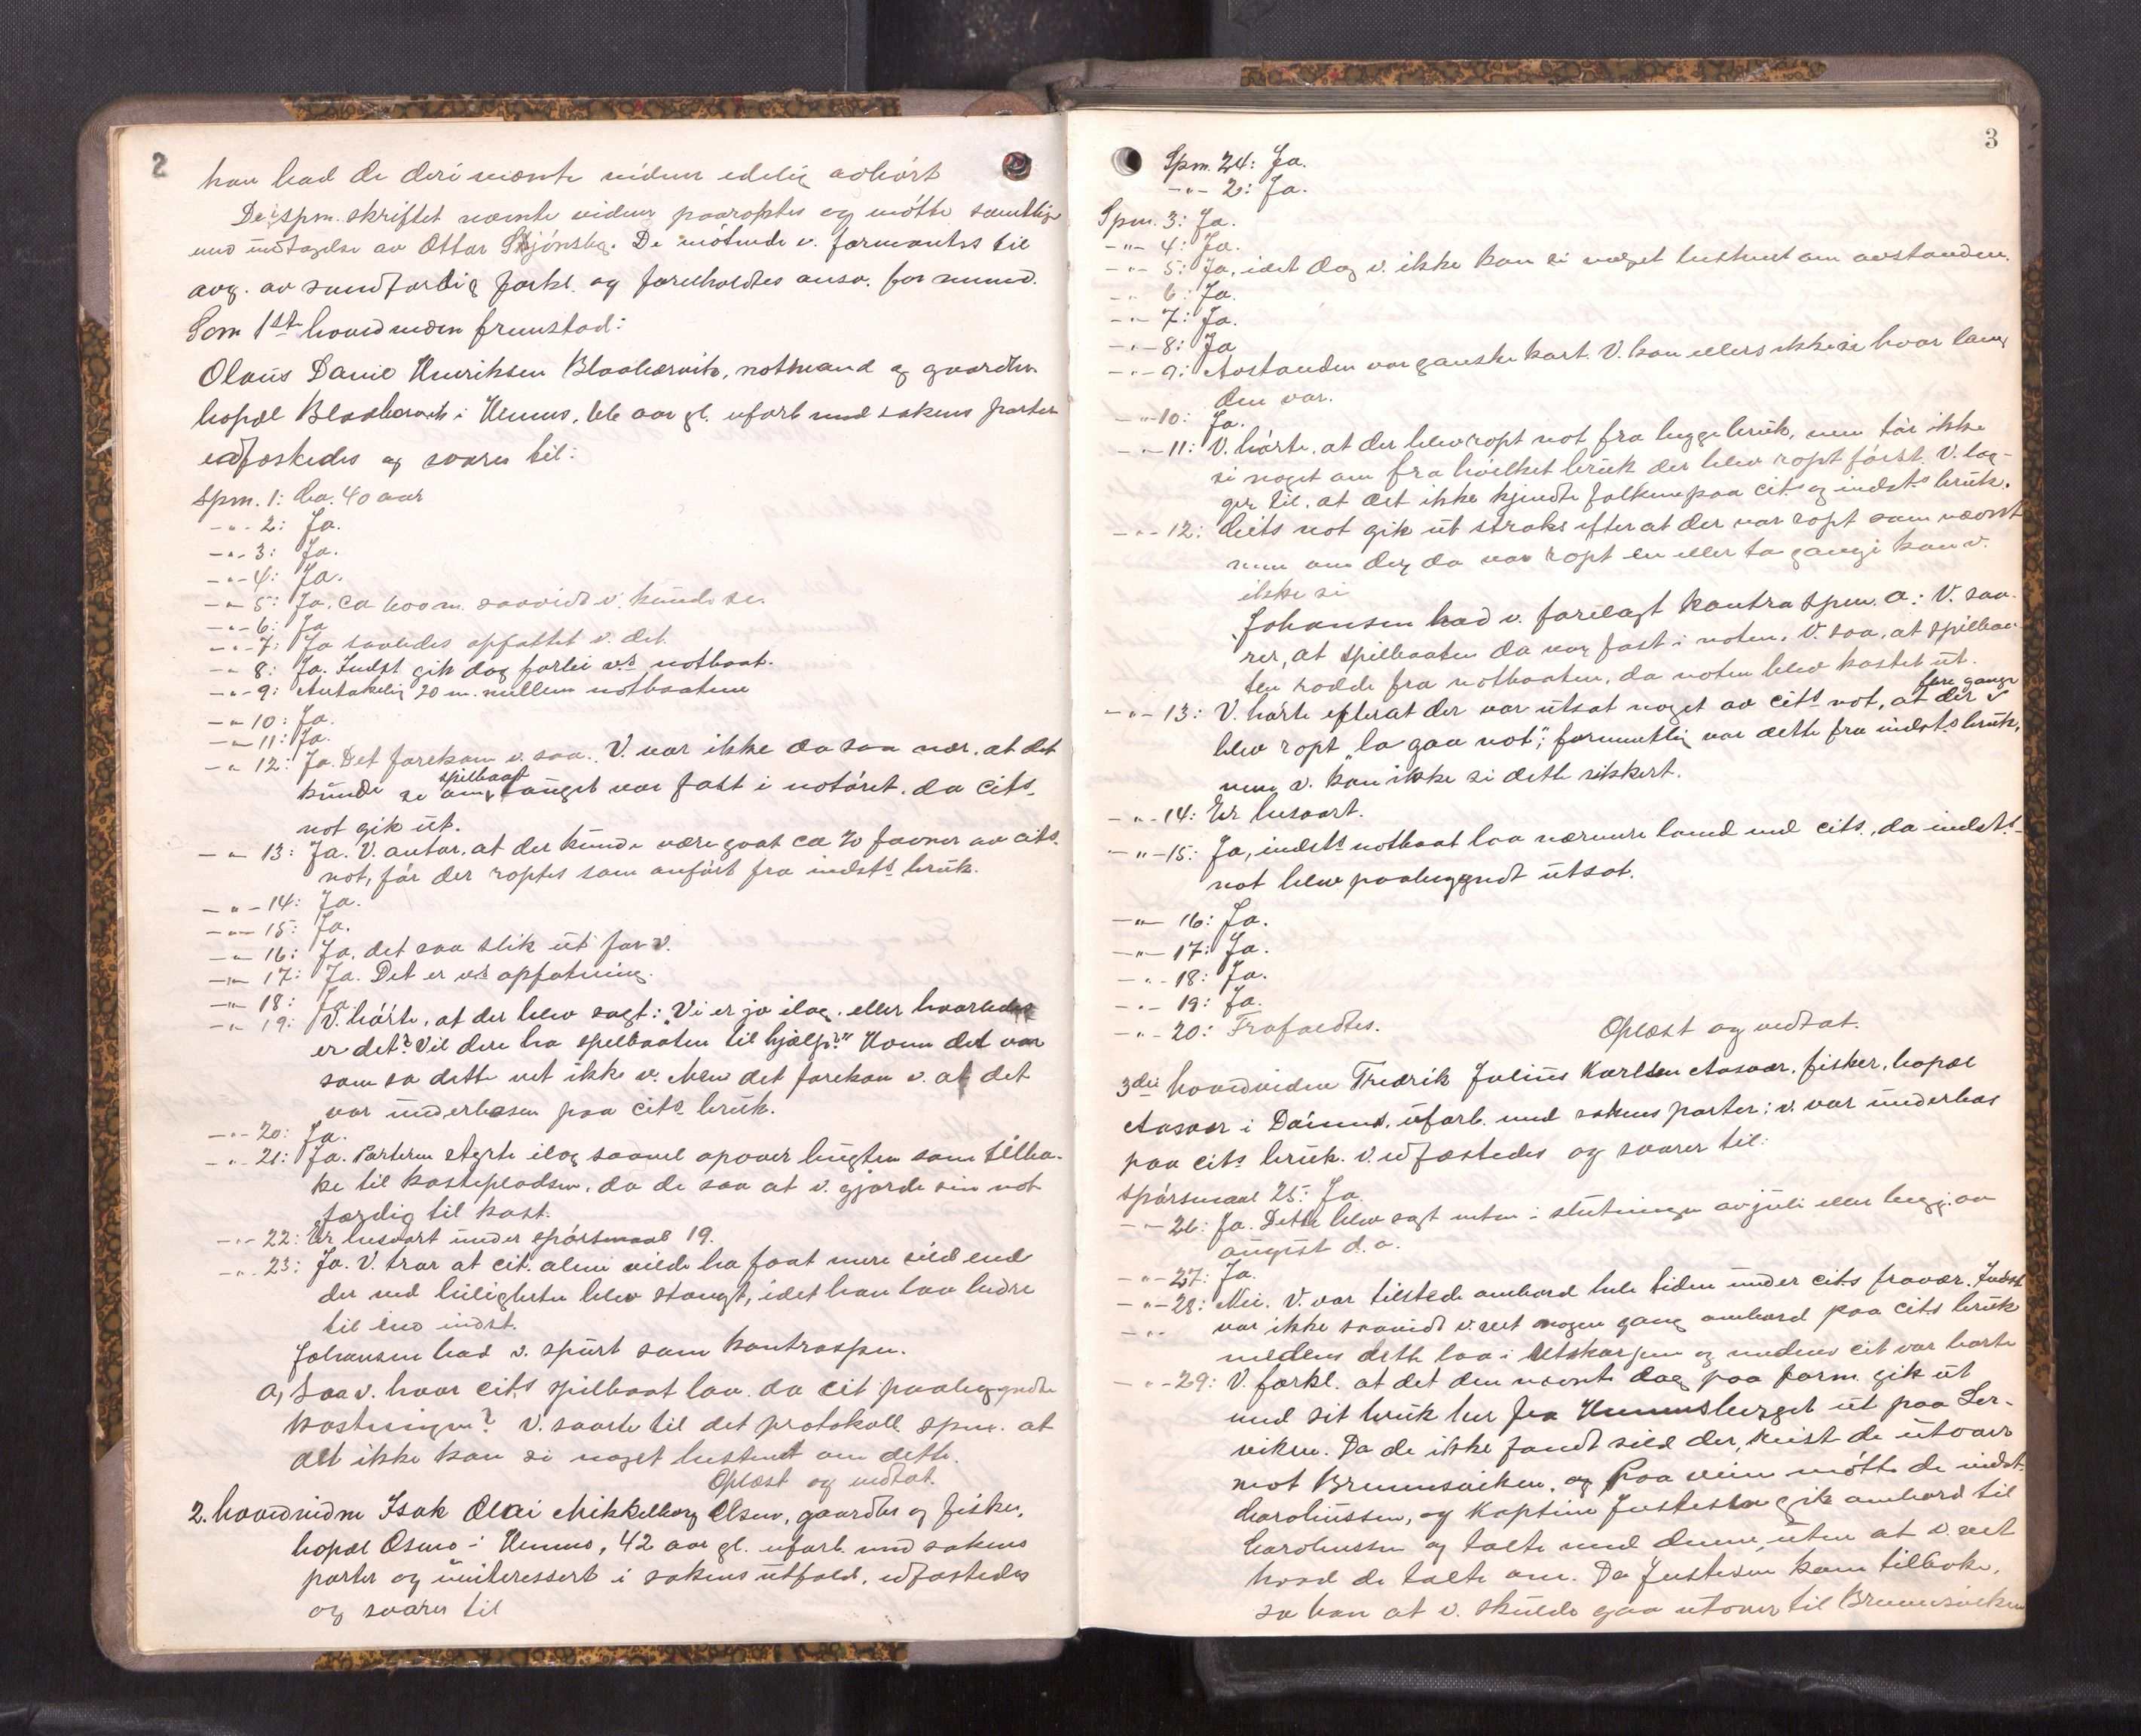 2
han bad de deri nævnte vidner edelig avhørt
De i spm. skriftet nævnte vidner paaroptes og møtte samtlige
med undtagelse av Ottar Skjønsby. De møtende v. formantes til
avg. av sandfærdig forkl. og foreholdtes ansv. for mened.
Som 1ste hovedvidne fremstod:
Olaus Danie Henriksen Blaahernits, notmand og gaardbr.
bopæl Blaahernits i Hemnes, 66 aar gl. ubesl. med sakens parter
edfæstedes og svarer til:
Spm. 1: Ca. 40 aar
-"- 2: Ja.
-"- 3: Ja.
-"- 4: Ja.
-"- 5: Ja. ca 600 m. saavidt v. kunde se.
-"- 6: Ja
-"- 7: Ja saaledes opfattet v. det.
-"- 8: Ja. Indst. gik dog forbi v.s notbaat.
-"- 9: Antakelig 20 m. mellem notbaatene
-"- 10: Ja.
-"- 11: Ja.
-"- 12: Ja. Det forekom v. saa. V. var ikke da saa nær, at det
kunde se om spilbaattauget var fast i notøret, da cits.
not gik ut.
-"- 13: Ja. V. antar, at der kunde være gaat ca 20 favner av cits.
not, før der roptes som anført fra indsts bruk.
-"- 14: Ja.
-"- 15: Ja.
-"- 16: Ja, det saa slik ut for v.
-"- 17: Ja. Det er v.s opfatning.
-"- 18: Ja
-"- 19: V. hørte, at der blev sagt: "Vi er jo ilag, eller hvorledes
er det? Vil dere ha spilbaaten til hjælp?" Hvem det var
som sa dette vet ikke v. Men det forekom v. at det
var underbasen paa cits bruk.
-"- 20: Ja.
-"- 21: Ja. Parterne styrte ilag saavel opover bugten som tilba-
ke til kastepladsen, da de saa at v. gjorde sin not
færdig til kast.
-"- 22: Er besvart under spørsmaal 19.
-"- 23: Ja. V. tror at cit. alene vilde ha faat mere sild end
der ved leiligheten blev stængt, idet han laa bedre
til end indst.
Johansen bad v. spurt som kontraspm.
a, Saa v. hvor cits spilbaat laa, da cit paabegyndte
kastningen? V. svarte til det protokoll. spm. at
det ikke kan si noget bestemt om dette.
Oplæst og vedtat.
2. hovedvidne Isak Olai Mikkelborg Olsen, gaardbr og fisker,
bopæl Osmo i Hemnes, 42 aar gl. ubesl. med sakens
parter og uinteressert i sakens utfald, edfæstedes
og svarer til
3
Spm. 24: Ja.
-"- 2: Ja.
Spm. 3: Ja.
-"- 4: Ja.
-"- 5: Ja, idet dog v. ikke kan si noget bestemt om avstanden.
-"- 6: Ja.
-"- 7: Ja.
-"- 8: Ja
-"- 9: Avstanden var ganske kort. V. kan ellers ikke si hvor lang
den var.
-"- 10: Ja.
-"- 11: V. hørte, at der blev ropt not fra begge bruk, men tør ikke
si noget om fra hvilket bruk der blev ropt først. V. læg-
ger til, at det ikke kjendte folkene paa cits og indsts bruk.
-"- 12: Cits not gik ut straks efter at der var ropt som nævnt
men om der da var ropt en eller to ganger kan v.
ikke si
Johansen bad v. forelagt kontra spm. a: V. sva-
rer, at spilbaaten da var fast i noten. V. saa, at spilbaa-
ten rodde fra notbaaten, da noten blev kastet ut.
-"- 13: V. hørte efter at der var utsat noget av cits not, at der flere ganger
blev ropt "la gaa not"; formentlig var dette fra indsts bruk,
men v. kan ikke si dette sikkert.
-"- 14: Er besvart.
-"- 15: Ja, indsts notbaat laa nærmere land end cits, da indsts
not blev paabegyndt utsat.
-"- 16: Ja.
-"- 17: Ja.
-"- 18: Ja.
-"- 19: Ja.
-"- 20: Frafaldtes. Oplæst og vedtat.
3die hovedvidne Fredrik Julius Karlsen Aasvær, fisker, bopæl
Aasvær i Dønnes, ubesl. med sakens parter; v. var underbas
paa cits bruk. V. edfæstedes og svarer til:
Spørsmaal 25: Ja.
-"- 26: Ja. Dette blev sagt enten i slutningen av juli eller begy. av
august d. a.
-"- 27: Ja.
-"- 28: Nei. V. var tilstede ombord hele tiden under cits fravær. Indst
-"- var ikke saavidt v. vet nogen gang ombord paa cits bruk
mellem dette laa i Utskarpen og medens cit var borte
-"- 29: V. forkl. at det den nævnte dag paa form. gik ut
med sit bruk her fra Hemnesberget ut paa Ler-
viken. Da de ikke fandt sild der, reiste de utover
mot Bremsviken, og paa veien møtte de indst.
Caroliussen, og kaptein Justesen gik ombord til
Caroliussen og talte med denne, uten at v. vet
hvad de talte om. Da Justesen kom tilbake,
sa han at v. skulde gaa utover til Bremsviken